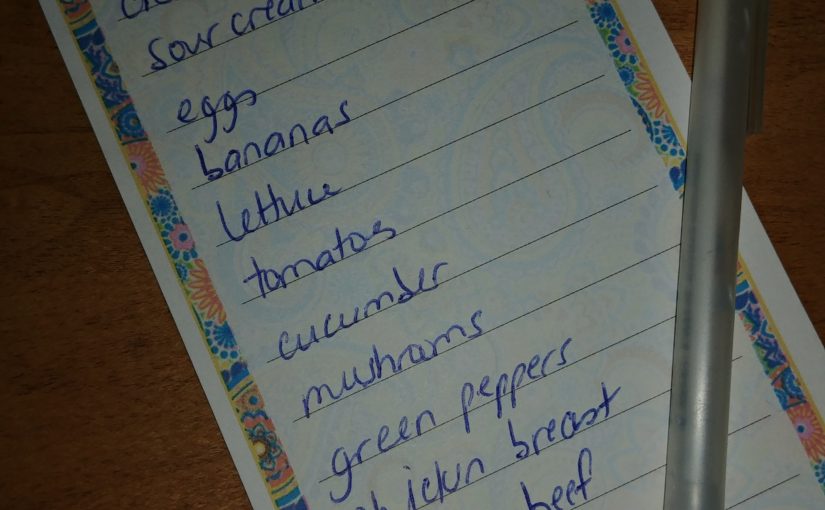 sour cream
eggs
bananas
lettuce
tomatos
cucumber
mushroms
green peppers
chickin breast
beef